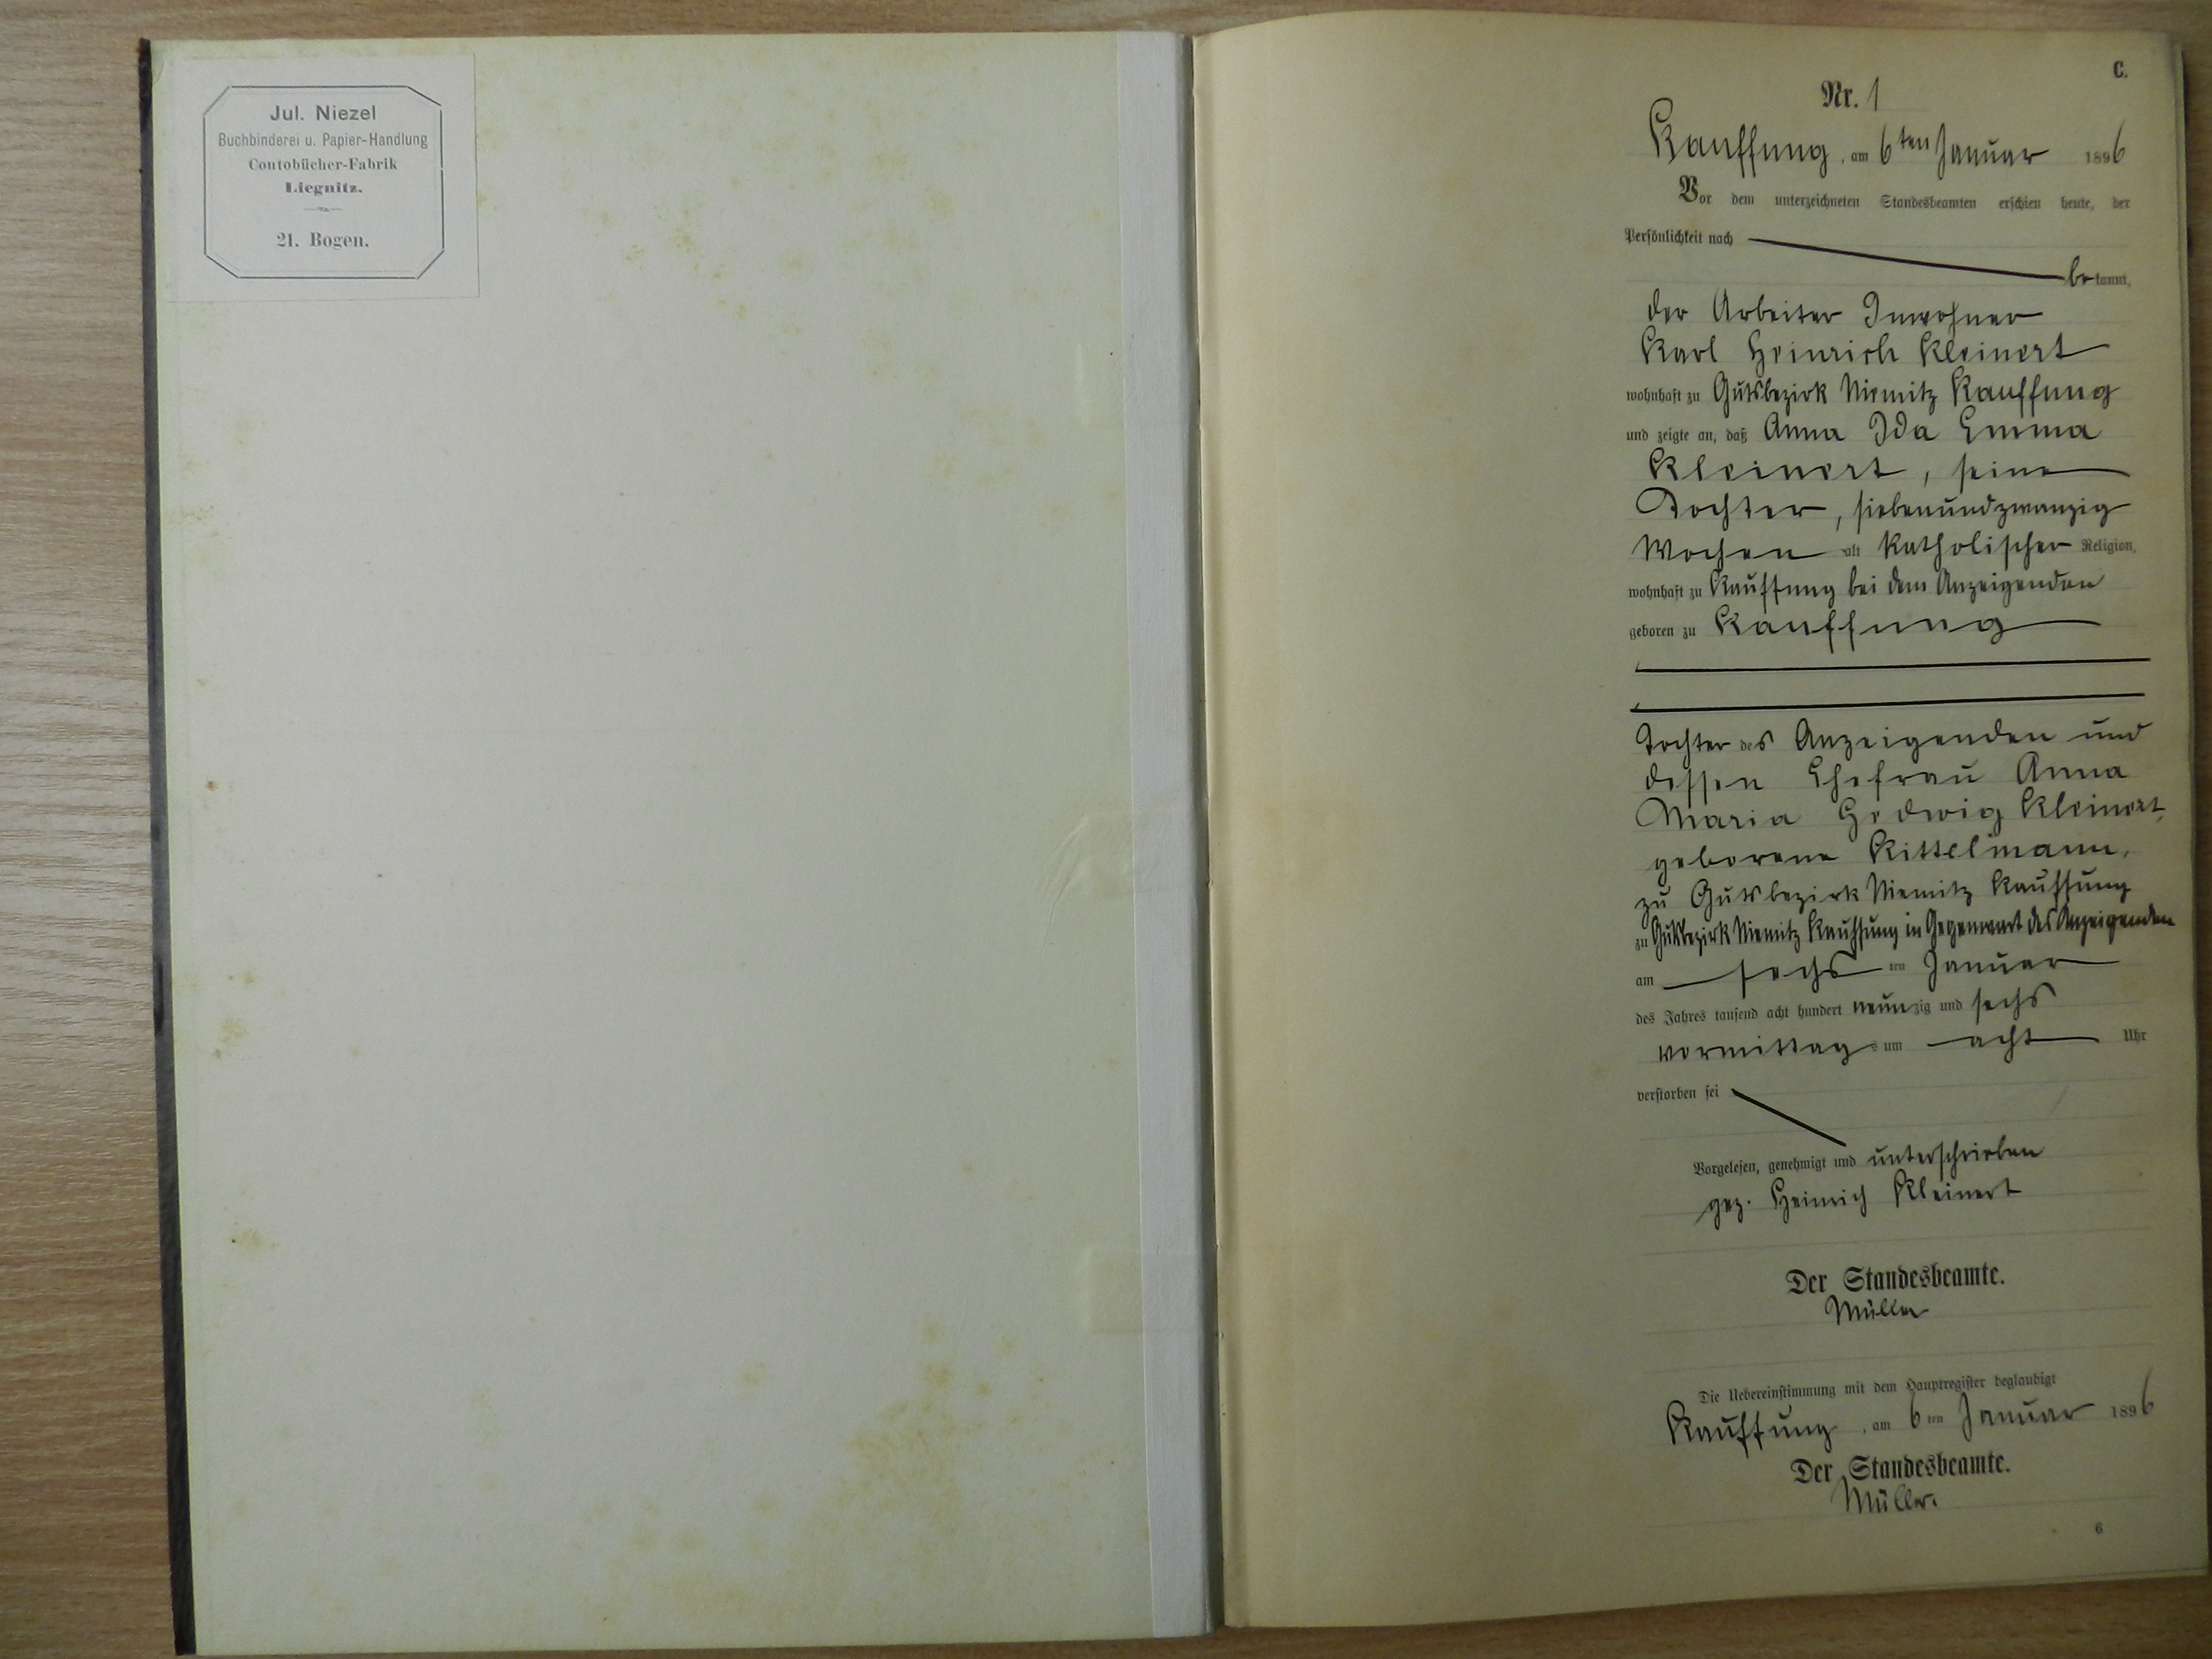 Jul. Niezel
Buchbinderei u. Papier-Handlung
Contobücher-Fabrik
Liegnitz.
21. Bogen.
C.
Nr. 1
Kauffung, am 6ten Januar 1896
Vor dem unterzeichneten Standesbeamten erschien heute, der
Persönlichkeit nach
bekannt,
der Arbeiter Inwohner
Karl Heinrich Kleinert
wohnhaft zu Gutsbezirk Niemitz Kauffung
und zeigte an, daß Anna Ida Emma
Kleinert, seine
Tochter, siebenundzwanzig
Wochen alt katholischer Religion,
wohnhaft zu Kauffung bei dem Anzeigenden
geboren zu Kauffung
Tochter des Anzeigenden und
dessen Ehefrau Anna
Maria Hedwig Kleinert,
geborene Kittelmann,
zu Gutsbezirk Niemitz Kauffung
zu Gutsbezirk Niemitz Kauffung in Gegenwart des Anzeigenden
am sechs ten Januar
des Jahres tausend acht hundert neunzig und sechs
vormittags um acht Uhr
verstorben sei
Vorgelesen, genehmigt und unterschrieben
gez. Heinrich Kleinert
Der Standesbeamte.
Müller
Die Uebereinstimmung mit dem Hauptregister beglaubigt
Kauffung, am 6ten Januar 1896
Der Standesbeamte.
Müller.
6